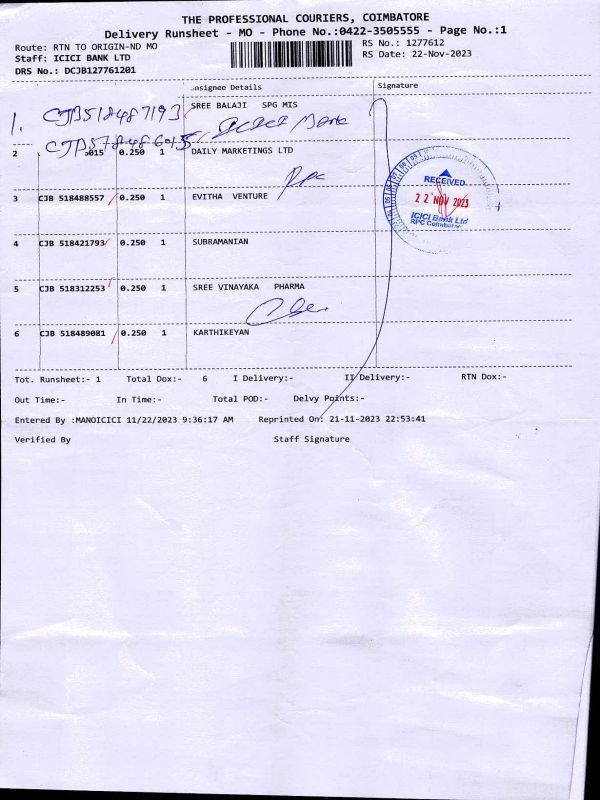 THE PROFESSIONAL COURIERS, COIMBATORE
Delivery Runsheet - MO - Phone No.:0422-3505555 - Page No.:1
Route: RTN TO ORIGIN-ND MO
RS No.: 1277612
Staff: ICICI BANK LTD
RS Date: 22-Nov-2023
DRS No.: DCJB127761201
onsignee Details Signature
SREE BALAJI SPG MIS
1. CJB518487193
ICICI Bank
2 5015 0.250 1 DAILY MARKETINGS LTD
RPC
3 CJB 518488557 0.250 1 EVITHA VENTURE
4 CJB 518421793 0.250 1 SUBRAMANIAN
5 CJB 518312253 0.250 1 SREE VINAYAKA PHARMA
6 CJB 518489081 0.250 1 KARTHIKEYAN
RECEIVED
22 NOV 2023
ICICI Bank Ltd
RPC Coimbator
Tot. Runsheet:- 1 Total Dox:- 6 I Delivery:- II Delivery:- RTN Dox:-
Out Time:- In Time:- Total POD:- Delvy Points:-
Entered By :MANOICICI 11/22/2023 9:36:17 AM Reprinted On: 21-11-2023 22:53:41
Verified By Staff Signature